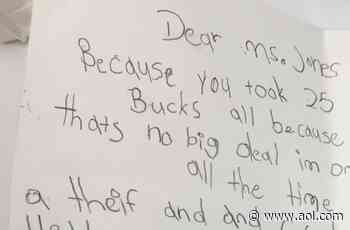 Dear Ms. Jones
Because you took 25
Bucks all because
thats no big deal im or
all the time
a theif and and
www.aol.com